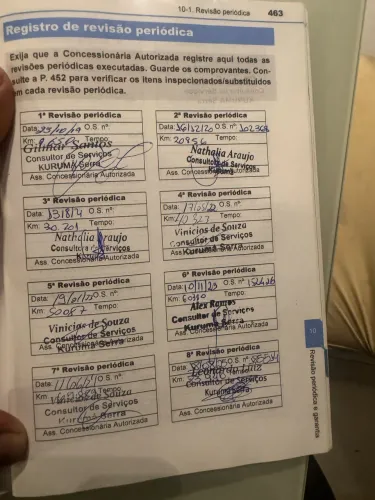 10-1. Revisão periódica 463
Registro de revisão periódica
Exija que a Concessionária Autorizada registre aqui todas as
revisões periódicas executadas. Guarde os comprovantes. Con-
sulte a P. 452 para verificar os itens inspecionados/substituídos
em cada revisão periódica.
1ª Revisão periódica
Data: O.S. nº:
Km: Tempo:
Gilmar Santos
Consultor de Serviços
KURUMÁ Serra
Ass. Concessionária Autorizada
2ª Revisão periódica
Data: 16/12/20 O.S. nº:
Km: 20956 Tempo:
Nathalia Araujo
Consultora de Serviços
Ass. Concessionária Autorizada
3ª Revisão periódica
Data: O.S. nº:
Km: 30.201 Tempo:
Nathalia Araujo
Consultora de Serviços
Ass. Concessionária Autorizada
4ª Revisão periódica
Data: O.S. nº:
Km: Tempo:
Vinicios de Souza
Consultor de Serviços
Kurumá Serra
Ass. Concessionária Autorizada
5ª Revisão periódica
Data: O.S. nº:
Km: 50087 Tempo:
Vinicios de Souza
Consultor de Serviços
Kurumá Serra
Ass. Concessionária Autorizada
6ª Revisão periódica
Data: 10/11/23 O.S. nº:
Km: Tempo:
Alex Ramos
Consultor de Serviços
Kurumá Serra
Ass. Concessionária Autorizada
7ª Revisão periódica
Data: O.S. nº:
Km: Tempo:
Vinicios de Souza
Consultor de Serviços
Kurumá Serra
Ass. Concessionária Autorizada
8ª Revisão periódica
Data: O.S. nº:
Km: Tempo:
Leonardo Luiz
Consultor de Serviços
Kurumá Serra
Ass. Concessionária Autorizada
10
Revisão periódica e garantia